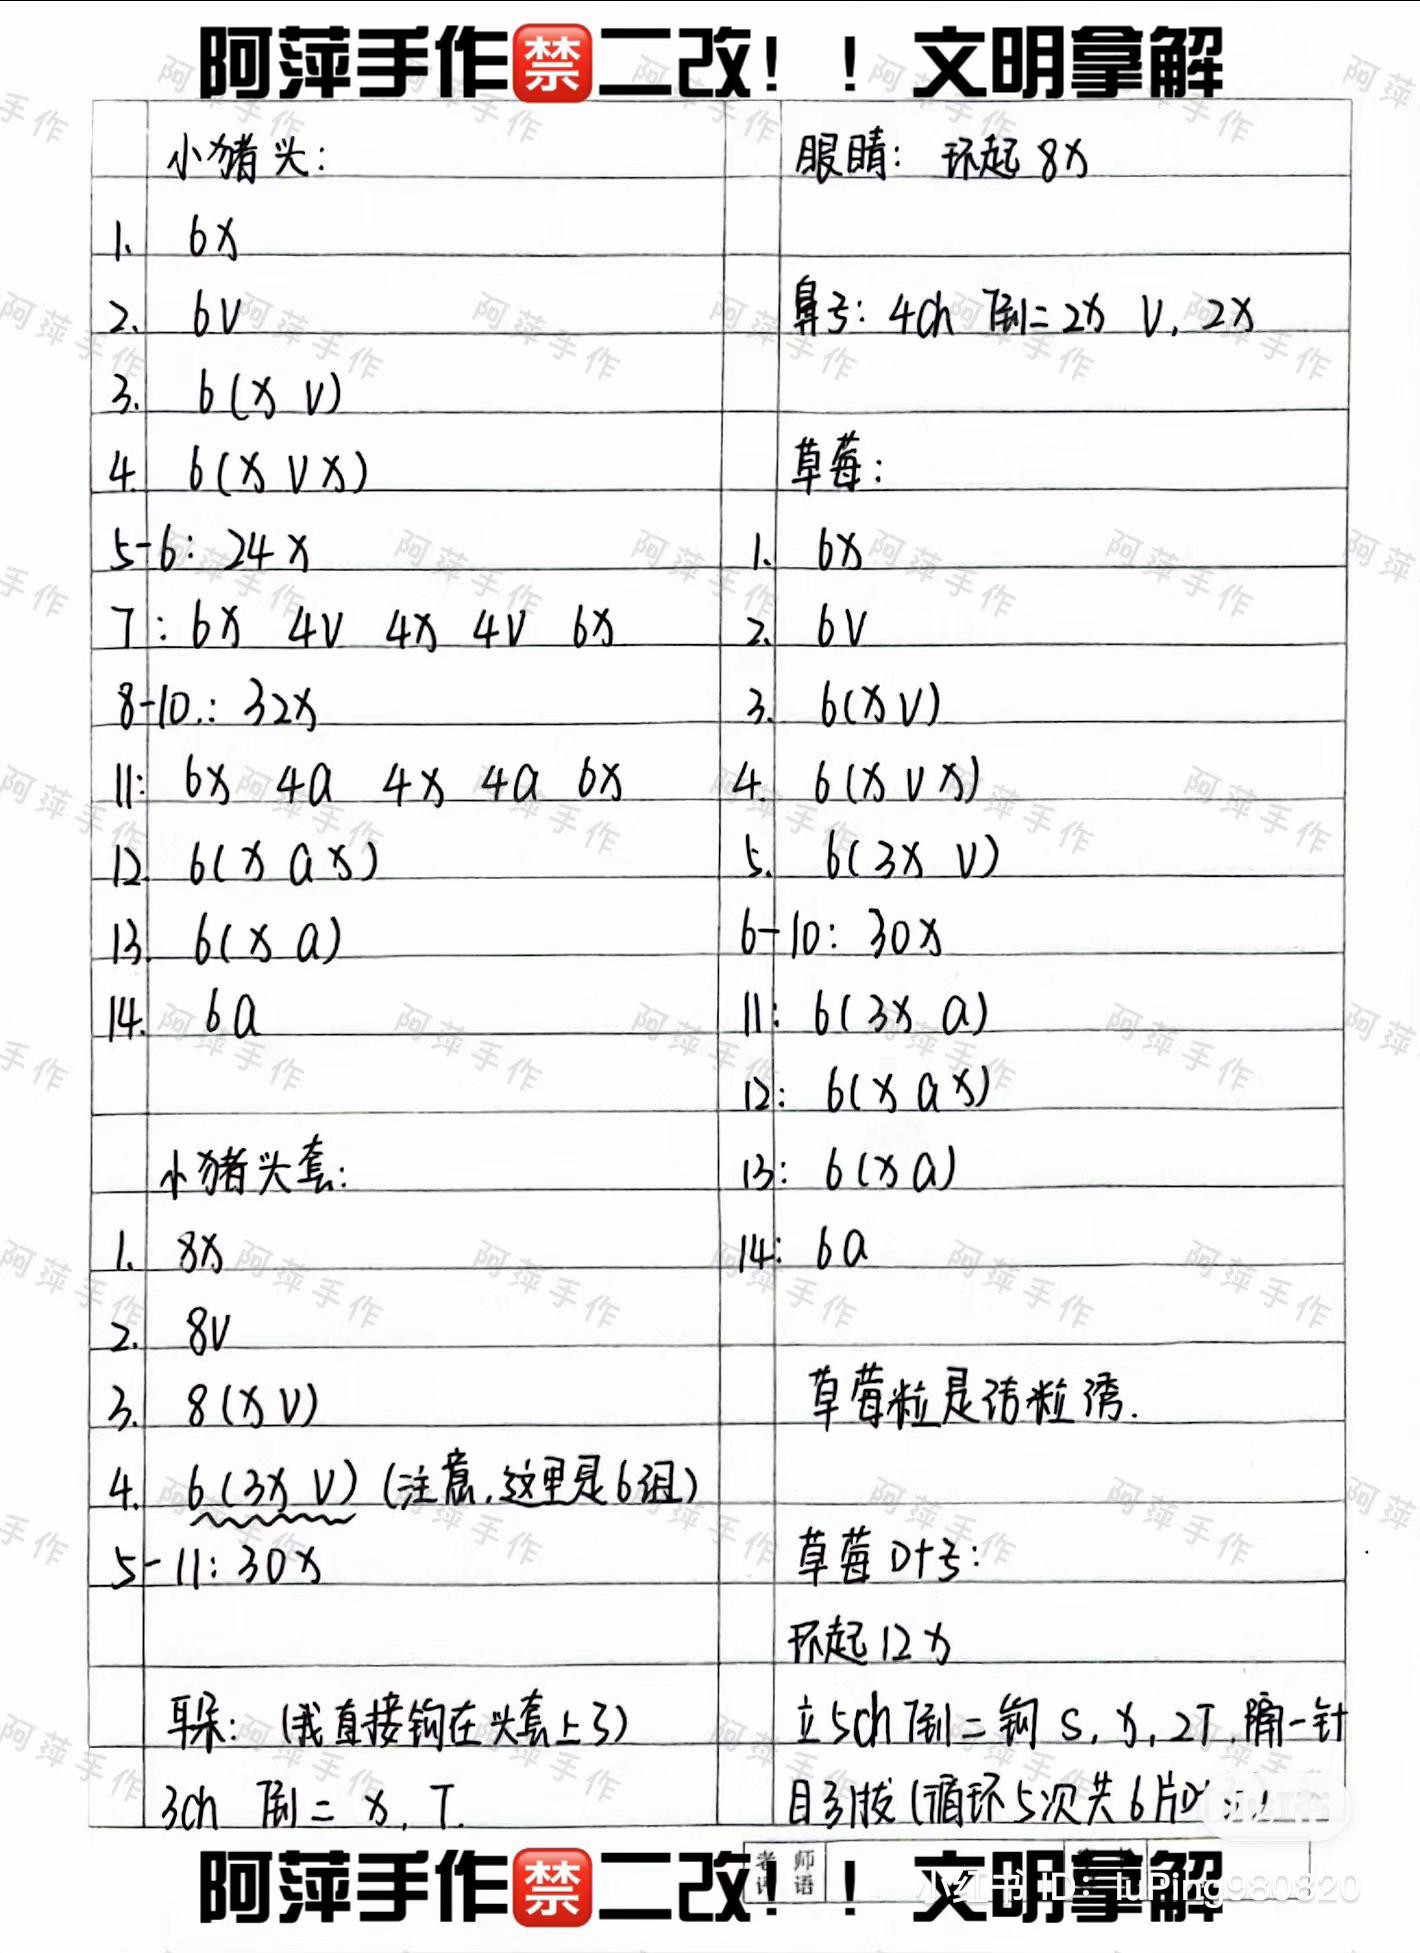 阿萍手作禁二改！！文明拿解
小猪头：
1. 6X
2. 6V
3. 6(X V)
4. 6(X V X)
5-6: 24X
7: 6X 4V 4X 4V 6X
8-10.: 32X
11: 6X 4A 4X 4A 6X
12. 6(X A X)
13. 6(X A)
14. 6A
小猪头套：
1. 8X
2. 8V
3. 8(X V)
4. 6(3X V)(注意,这里是6组)
5-11: 30X
耳朵：(我直接钩在头套上了)
3ch 倒二 X, T.
眼睛： 环起 8X
鼻子： 4ch 倒二 2X V, 2X
草莓：
1. 6X
2. 6V
3. 6(X V)
4. 6(X V X)
5. 6(3X V)
6-10: 30X
11: 6(3X A)
12: 6(X A X)
13: 6(X A)
14: 6A
草莓粒是结粒绣.
草莓叶子：
环起12X
立5ch 倒二钩 S, X, 2T, 隔一针
目引拔(循环5次共6片
老师评语
阿萍手作禁二改！！文明拿解
小红书 ID: luPing980820
阿萍手作